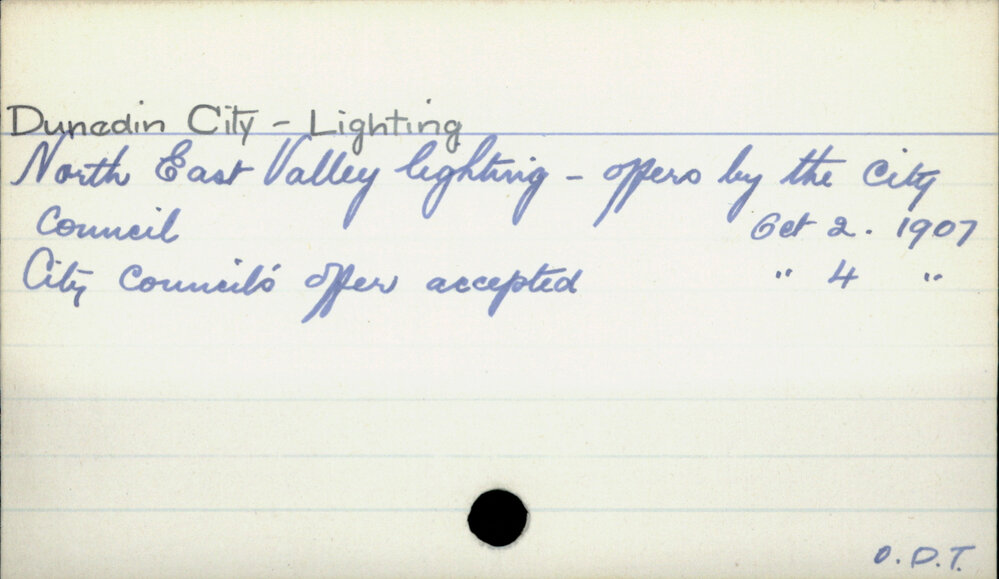 Dunedin City - Lighting
North East Valley lighting - offers by the City
Council Oct 2. 1907
City Council's offer accepted " 4 "
O.D.T.